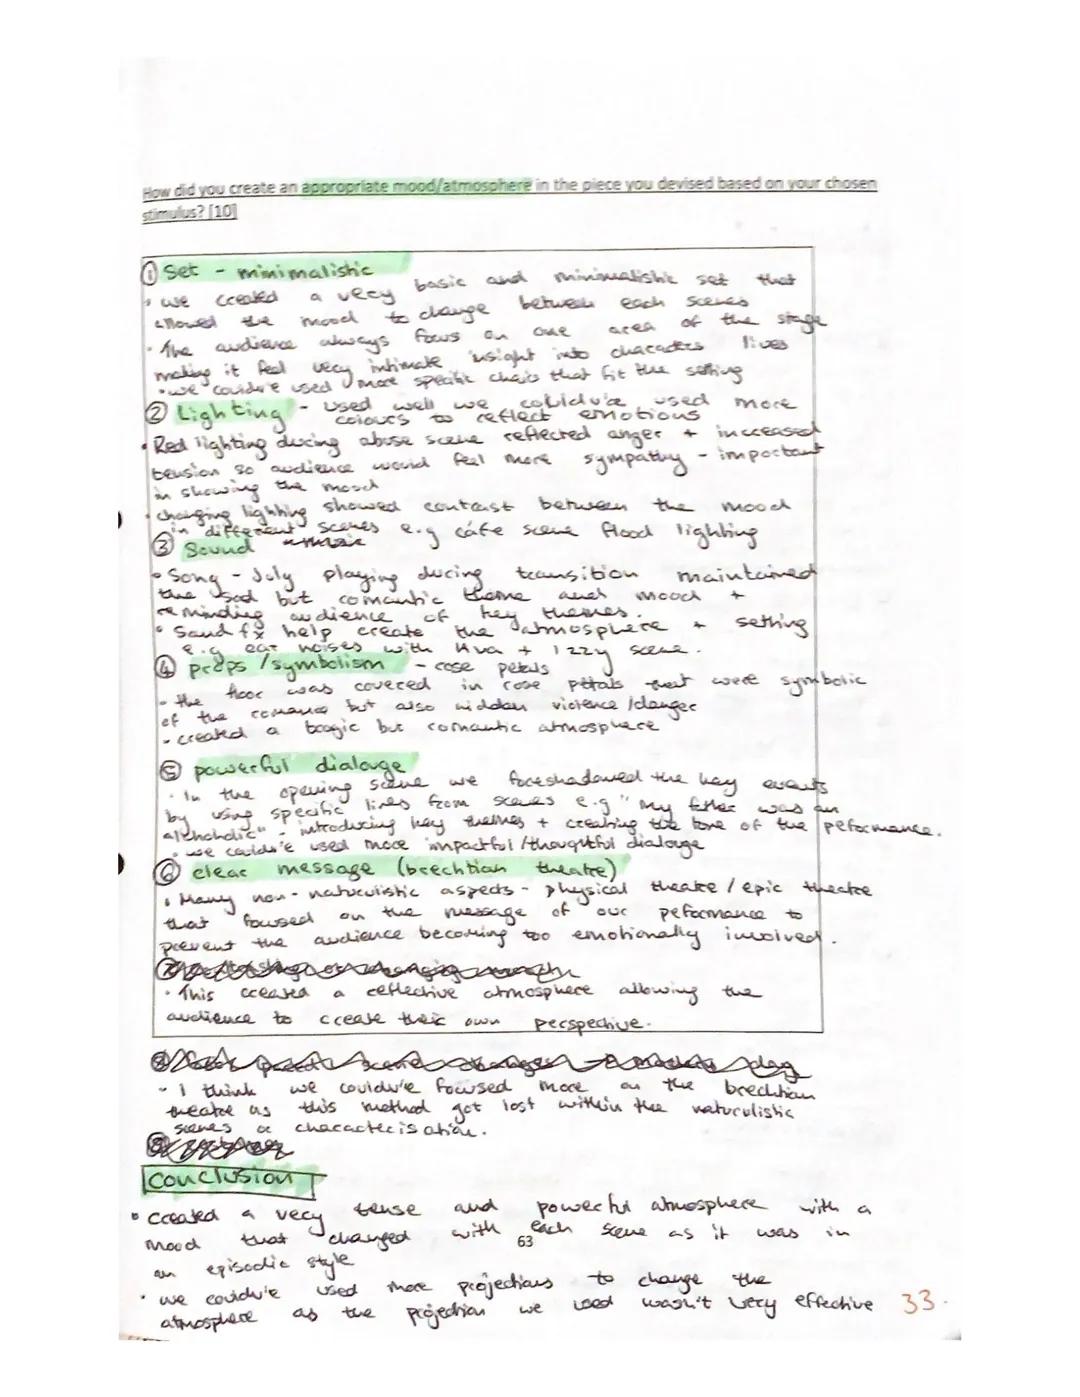 How did you create an appropriate mood/atmosphere in the piece you devised based on your chosen
stimulus? [10]
① Set - minimalistic
• we created a very basic and minimalistic set that
allowed the mood to change between each scenes
• The audience always focus on one area of the stage
making it feel very intimate insight into characters lives
• we couldv'e used more specific chairs that fit the setting
② Lighting - used well we couldv'e used more
colours to reflect emotions
• Red lighting during abuse scene reflected anger + increased
tension so audience would feel more sympathy - important
in showing the mood
• changing lighting showed contrast between the mood
in different scenes e.g cáfe scene flood lighting
③ Sound
• Song - July playing during transition maintained
the sad but romantic theme and mood +
reminding audience of key themes.
• Sound fx help create the atmosphere + setting
e.g car noises with Ava + Izzy scene.
④ props /symbolism - rose petals
- the floor was covered in rose petals that were symbolic
of the romance but also hidden violence /danger
- created a tragic but romantic atmosphere
⑤ powerful dialouge
• In the opening scene we foreshadowed the key events
by using specific lines from scenes e.g "my father was an
alchoholic" - introducing key themes + creating the tone of the peformance.
• we couldv'e used more impactful /thougutful dialouge
⑥ clear message (brechtian theatre)
• Many non-naturulistic aspects - physical theatre / epic theatre
that focused on the message of our peformance to
prevent the audience becoming too emotionally involved.
• This created a reflective atmosphere allowing the
audience to create their own perspective.
- I think we couldv'e focused more on the brechtian
theatre as this method got lost within the naturulistic
scenes or characterisation.
Conclusion
• Created a very tense and powerful atmosphere with a
mood that changed with each scene as it was in
63
an episodic style
• we couldv'e used more projections to change the
atmosphere as the projection we used wasn't very effective
33.